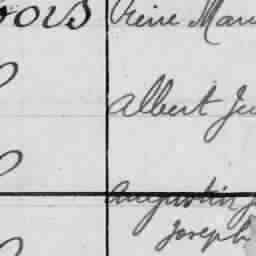 ois Irène Mari
Albert Ju
Augustin J
Joseph